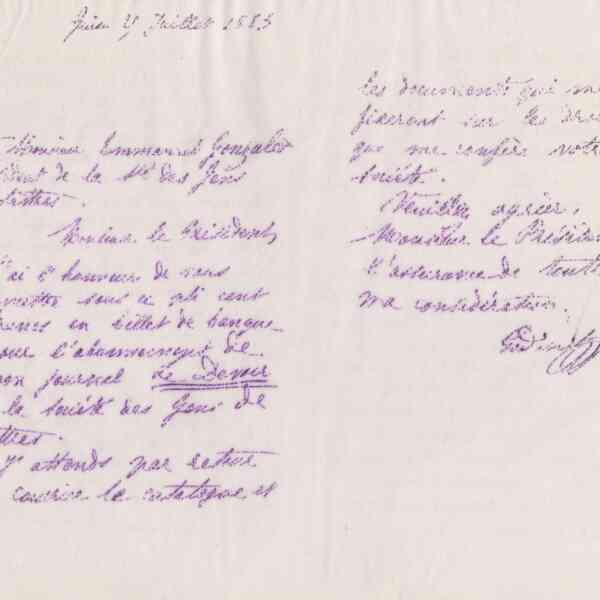 Juillet 1883
Monsieur Emmanuel Gonzalès
de la Sté des Gens
Monsieur le Président,
ai l'honneur de vous
sous ce pli cent
francs en billet de banque
l'abonnement de
journal Le Devoir
la Société des Gens de
J'attends par retour
courrier le catalogue et
les documents qui me
fixeront sur les
que me confère votre
Société.
Veuillez agréer,
Monsieur le Présiden
l'assurance de toute
ma considération.
Godin